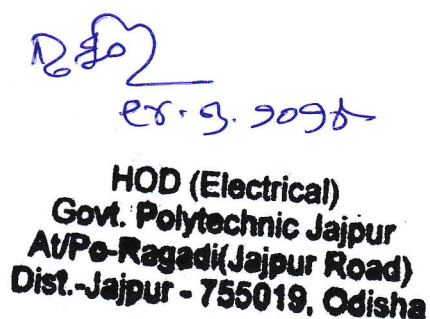 HOD (Electrical)
Govt. Polytechnic Jajpur
At/Po-Ragadi(Jajpur Road)
Dist.-Jajpur - 755019, Odisha